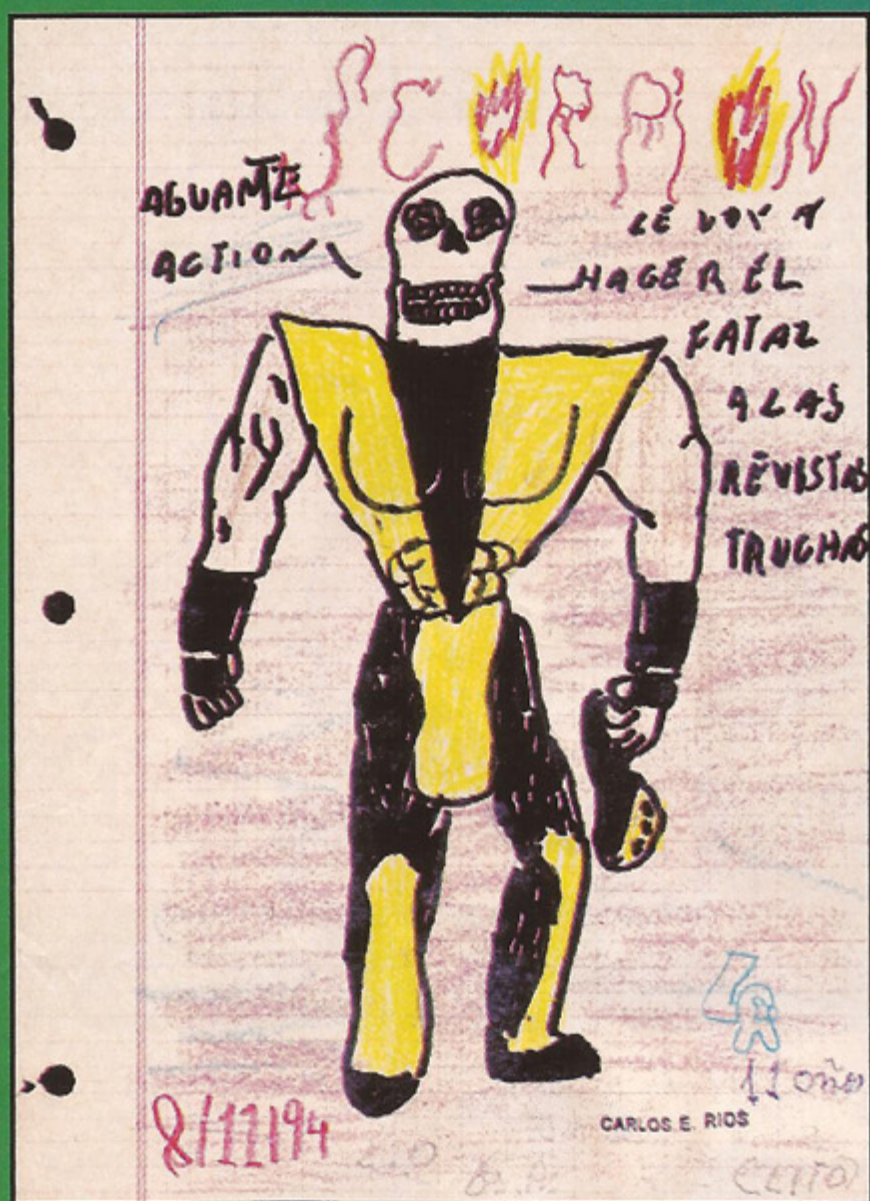 SCORPION
AGUANTE
ACTION
LE VOY A
HACER EL
FATAL
A LAS
REVISTAS
TRUCHAS
11 años
CARLOS E. RIOS
8/11/94